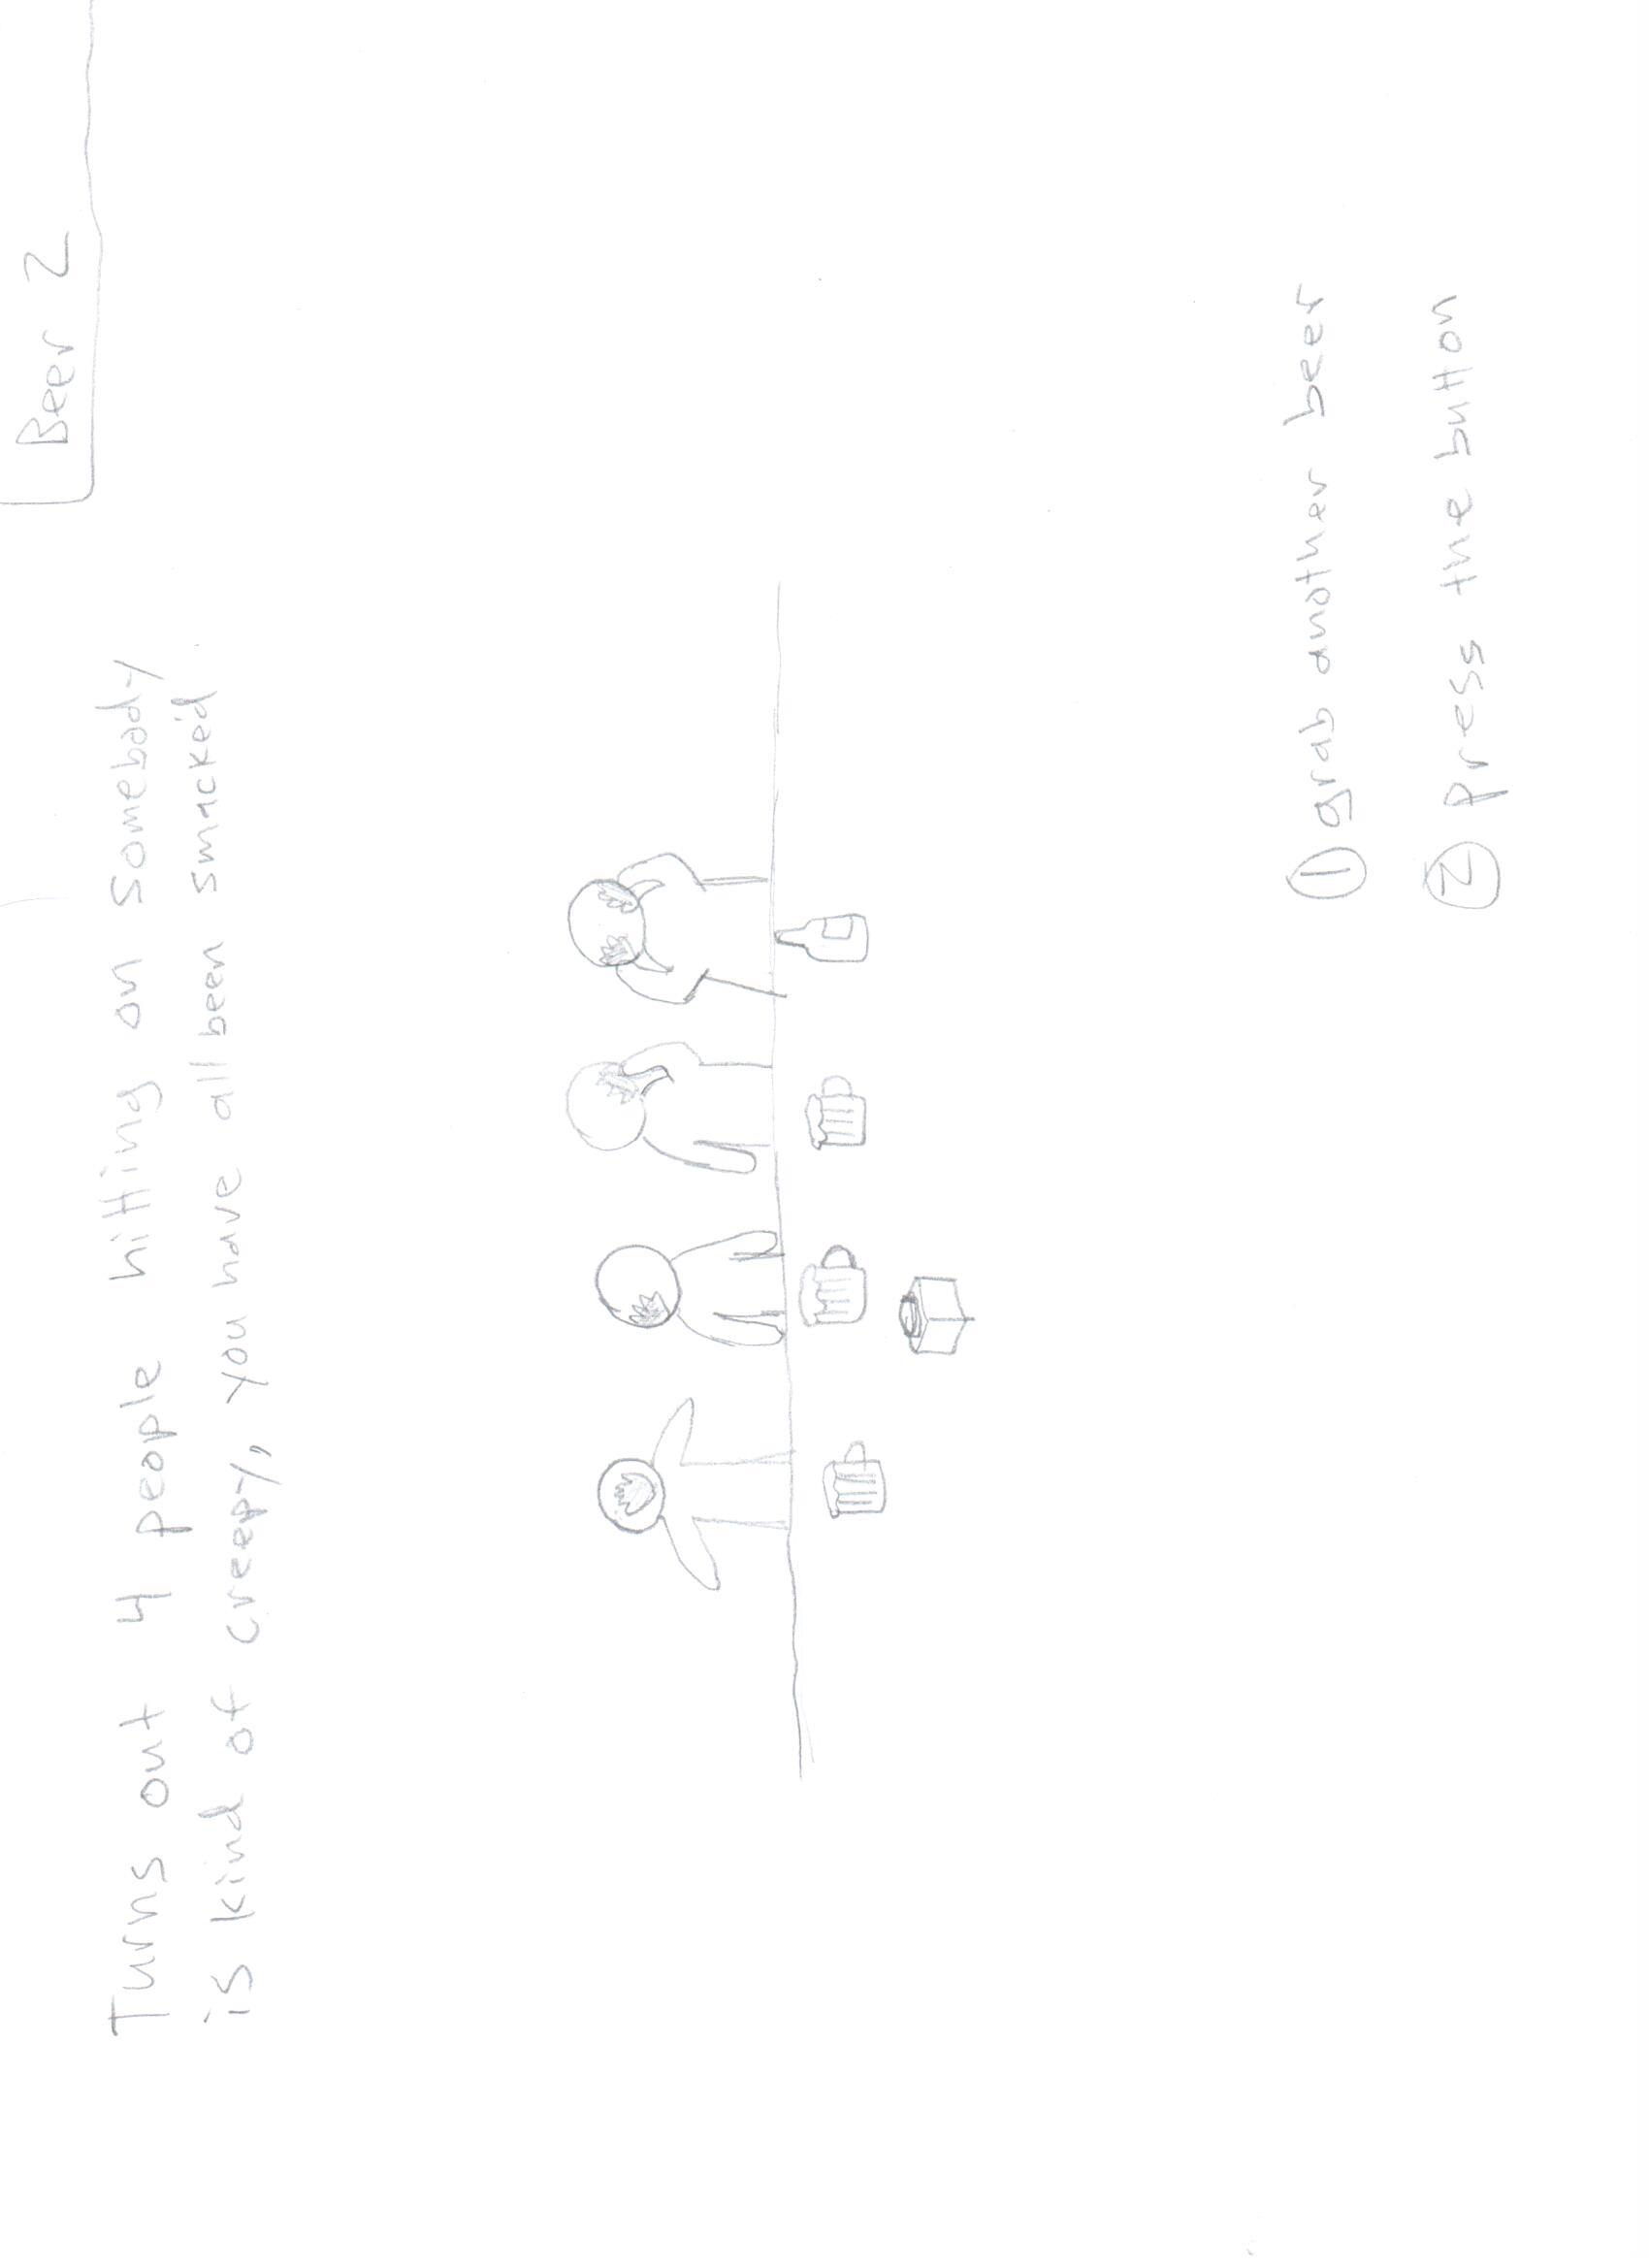 Beer 2
Turns out 4 people hitting on somebody
is kind of creepy, you have all been smacked.
1 grab another beer
2 press the button